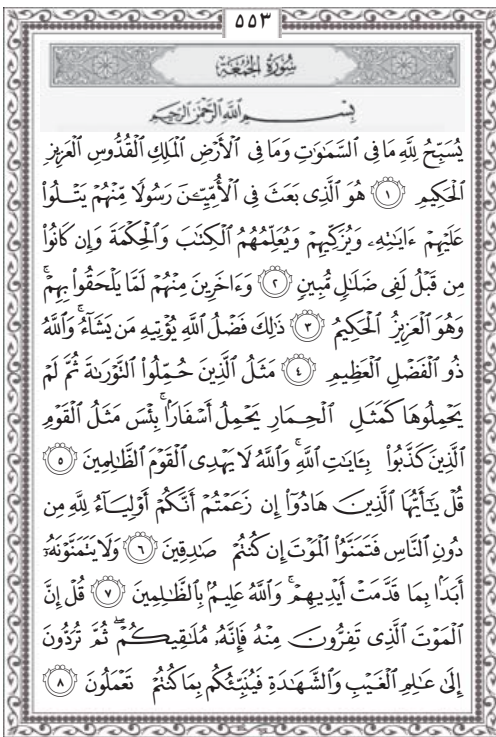 ٥٥٣
سُورَةُ الجُمُعَةِ
بِسْمِ ٱللَّهِ ٱلرَّحْمَٰنِ ٱلرَّحِيمِ
يُسَبِّحُ لِلَّهِ مَا فِى ٱلسَّمَٰوَٰتِ وَمَا فِى ٱلْأَرْضِ ٱلْمَلِكِ ٱلْقُدُّوسِ ٱلْعَزِيزِ
ٱلْحَكِيمِ ١ هُوَ ٱلَّذِى بَعَثَ فِى ٱلْأُمِّيِّـۧنَ رَسُولًا مِّنْهُمْ يَتْلُوا۟
عَلَيْهِمْ ءَايَٰتِهِۦ وَيُزَكِّيهِمْ وَيُعَلِّمُهُمُ ٱلْكِتَٰبَ وَٱلْحِكْمَةَ وَإِن كَانُوا۟
مِن قَبْلُ لَفِى ضَلَٰلٍ مُّبِينٍ ٢ وَءَاخَرِينَ مِنْهُمْ لَمَّا يَلْحَقُوا۟ بِهِمْ ۚ
وَهُوَ ٱلْعَزِيزُ ٱلْحَكِيمُ ٣ ذَٰلِكَ فَضْلُ ٱللَّهِ يُؤْتِيهِ مَن يَشَآءُ ۚ وَٱللَّهُ
ذُو ٱلْفَضْلِ ٱلْعَظِيمِ ٤ مَثَلُ ٱلَّذِينَ حُمِّلُوا۟ ٱلتَّوْرَىٰةَ ثُمَّ لَمْ
يَحْمِلُوهَا كَمَثَلِ ٱلْحِمَارِ يَحْمِلُ أَسْفَارًۢا ۚ بِئْسَ مَثَلُ ٱلْقَوْمِ
ٱلَّذِينَ كَذَّبُوا۟ بِـَٔايَٰتِ ٱللَّهِ ۚ وَٱللَّهُ لَا يَهْدِى ٱلْقَوْمَ ٱلظَّٰلِمِينَ ٥
قُلْ يَٰٓأَيُّهَا ٱلَّذِينَ هَادُوٓا۟ إِن زَعَمْتُمْ أَنَّكُمْ أَوْلِيَآءُ لِلَّهِ مِن
دُونِ ٱلنَّاسِ فَتَمَنَّوُا۟ ٱلْمَوْتَ إِن كُنتُمْ صَٰدِقِينَ ٦ وَلَا يَتَمَنَّوْنَهُۥٓ
أَبَدًۢا بِمَا قَدَّمَتْ أَيْدِيهِمْ ۚ وَٱللَّهُ عَلِيمٌۢ بِٱلظَّٰلِمِينَ ٧ قُلْ إِنَّ
ٱلْمَوْتَ ٱلَّذِى تَفِرُّونَ مِنْهُ فَإِنَّهُۥ مُلَٰقِيكُمْ ۖ ثُمَّ تُرَدُّونَ
إِلَىٰ عَٰلِمِ ٱلْغَيْبِ وَٱلشَّهَٰدَةِ فَيُنَبِّئُكُم بِمَا كُنتُمْ تَعْمَلُونَ ٨